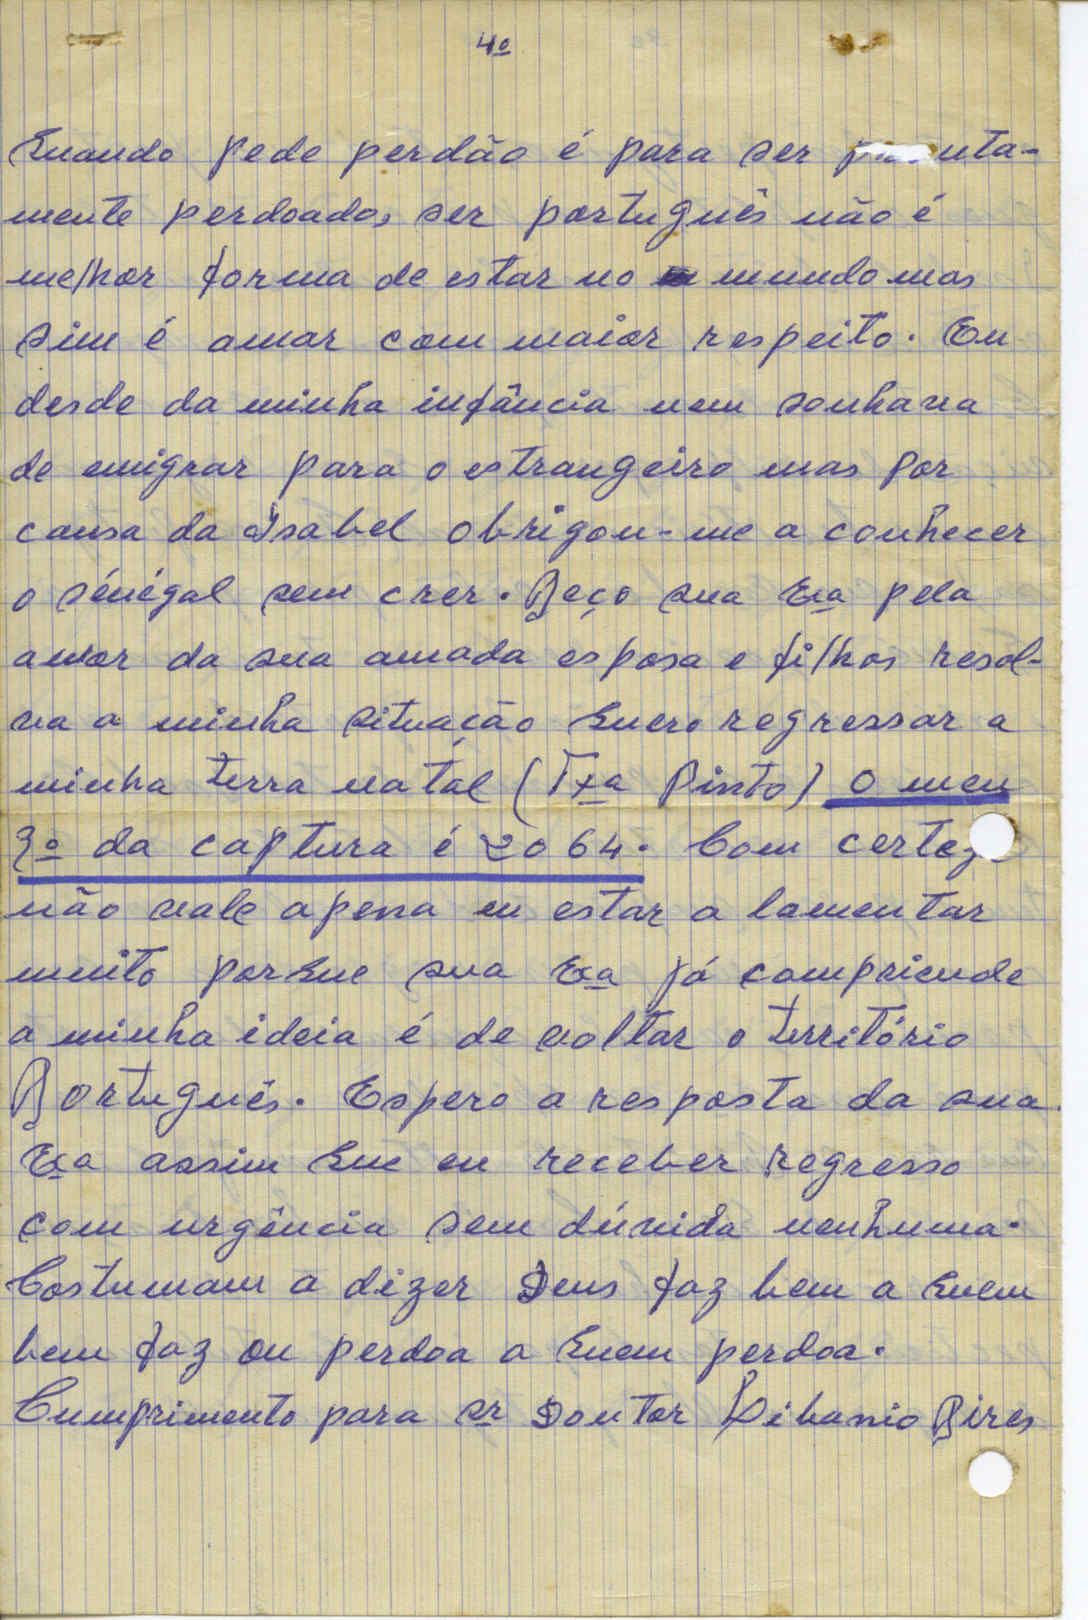 4º
Quando pede perdão é para ser
mente perdoado, ser português não é
melhor forma de estar no mundo mas
sim é amar com maior respeito. Eu
desde da minha infância nem sonhava
de emigrar para o estrangeiro mas por
causa da Isabel obrigou-me a conhecer
o sénégal sem crer. Peço sua Exª pela
amor da sua amada esposa e filhos resol-
va a minha situação Quero regressar a
minha terra natal (Txª Pinto) O meu
da captura é 2064. Com certeza
não vale apena eu estar a lamentar
muito porque sua Exª já compriende
a minha ideia é de voltar o território
Português. Espero a resposta da sua
Exª assim que eu receber regresso
com urgência sem dúvida nenhuma.
Costumam a dizer Deus faz bem a quem
bem faz ou perdoa a quem perdoa.
Cumprimento para sr Doutor Libanio Pires